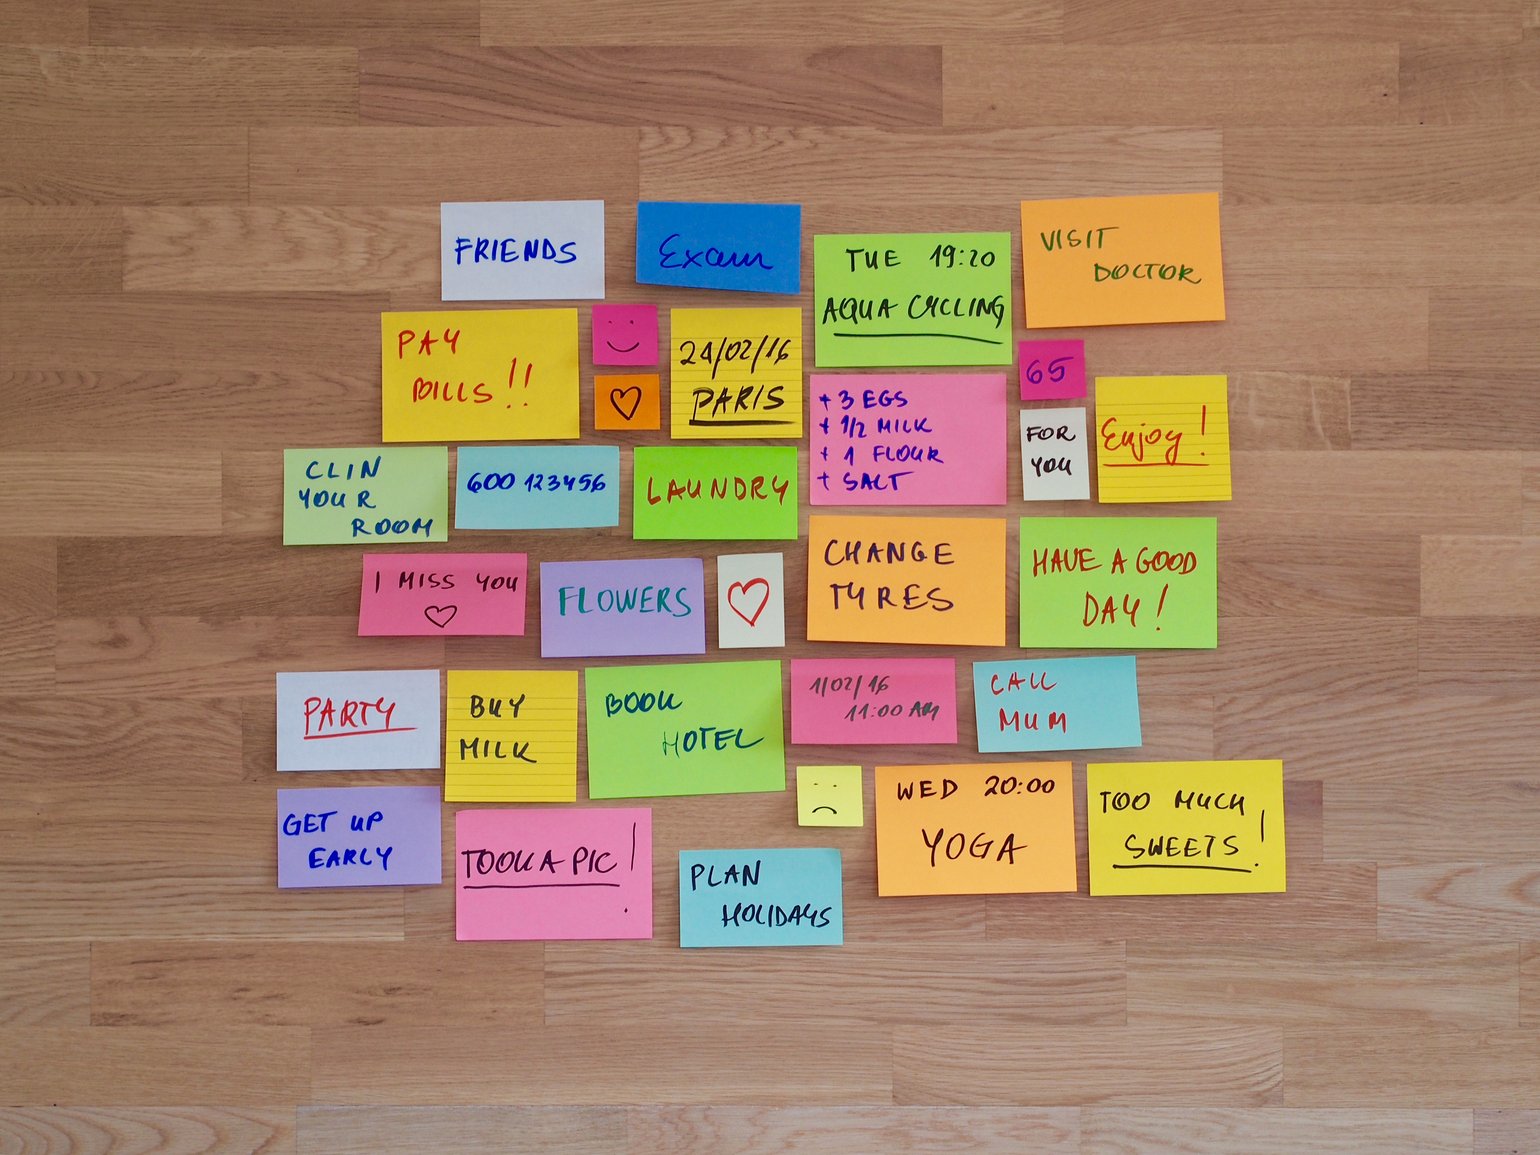 FRIENDS
Exam
TUE 19:20
AQUA CYCLING
VISIT
DOCTOR
PAY
BILLS!!
24/02/16
PARIS
65
+ 3 EGS
+ 1/2 MILK
+ 1 FLOUR
+ SALT
FOR
YOU
Enjoy!
CLIN
YOUR
ROOM
600 123456
LAUNDRY
I MISS YOU
FLOWERS
CHANGE
TYRES
HAVE A GOOD
DAY!
PARTY
BUY
MILK
BOOK
HOTEL
1/02/16
11:00 AM
CALL
MUM
GET UP
EARLY
TOOK A PIC!
PLAN
HOLIDAYS
WED 20:00
YOGA
TOO MUCH
SWEETS!